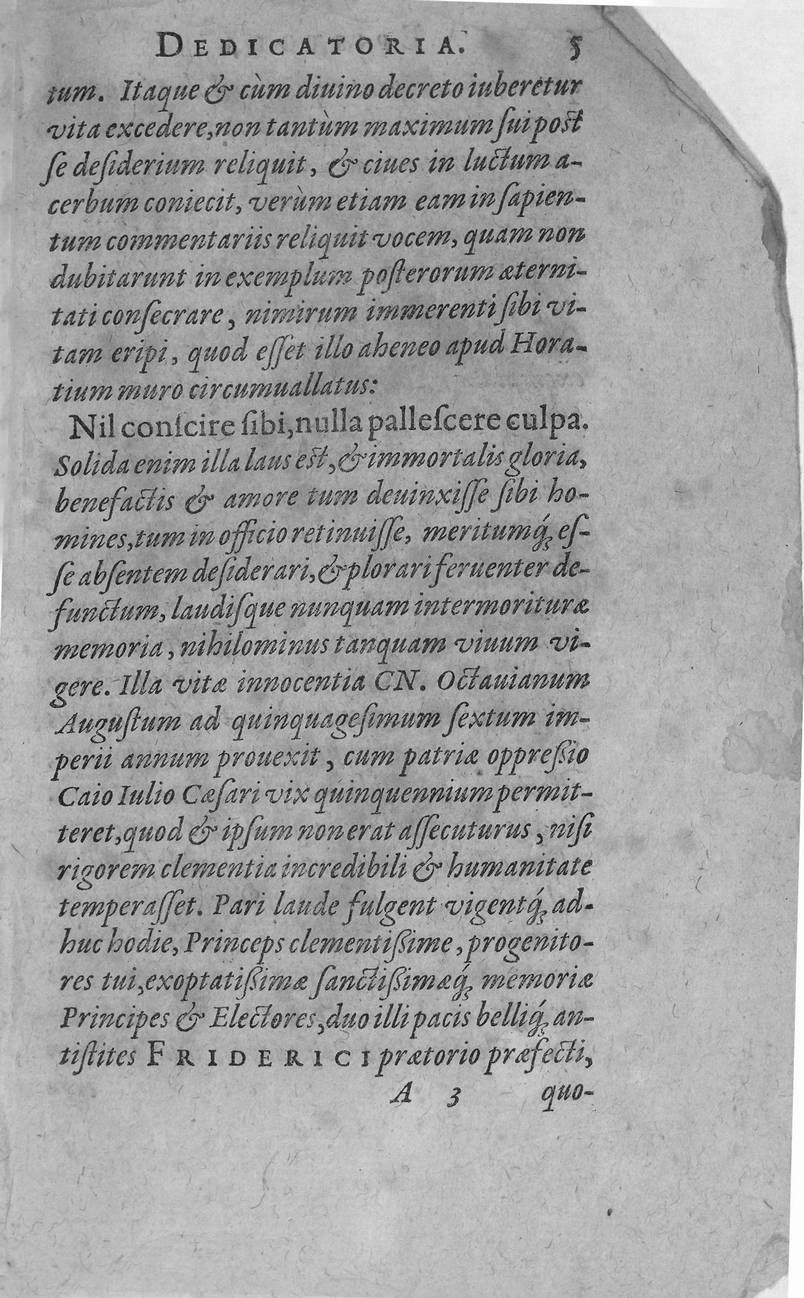 DEDICATORIA. 5
tum. Itaque & cùm diuino decreto iuberetur
vita excedere, non tantùm maximum ſui poſt
ſe deſiderium reliquit, & ciues in luctum a-
cerbum coniecit, verùm etiam eam in ſapien-
tum commentariis reliquit vocem, quam non
dubitarunt in exemplum poſterorum æterni-
tati conſecrare, nimirum immerenti ſibi vi-
tam eripi, quod eſſet illo aheneo apud Hora-
tium muro circumuallatus:
Nil conſcire ſibi, nulla palleſcere culpa.
Solida enim illa laus eſt, & immortalis gloria,
benefactis & amore tum deuinxiſſe ſibi ho-
mines, tum in officio retinuiſſe, meritumq́; eſ-
ſe abſentem deſiderari, & plorari feruenter de-
functum, laudiſque nunquam intermorituræ
memoria, nihilominus tanquam viuum vi-
gere. Illa vitæ innocentia CN. Octauianum
Auguſtum ad quinquageſimum ſextum im-
perii annum prouexit, cum patriæ oppreſſio
Caio Iulio Cæſari vix quinquennium permit-
teret, quod & ipſum non erat aſſecuturus, niſi
rigorem clementia incredibili & humanitate
temperaſſet. Pari laude fulgent vigentq́; ad-
huc hodie, Princeps clementiſſime, progenito-
res tui, exoptatiſſimæ ſanctiſſimæq́; memoriæ
Principes & Electores, duo illi pacis belliq́; an-
tiſtites FRIDERICI prætorio præfecti,
A 3 quo-